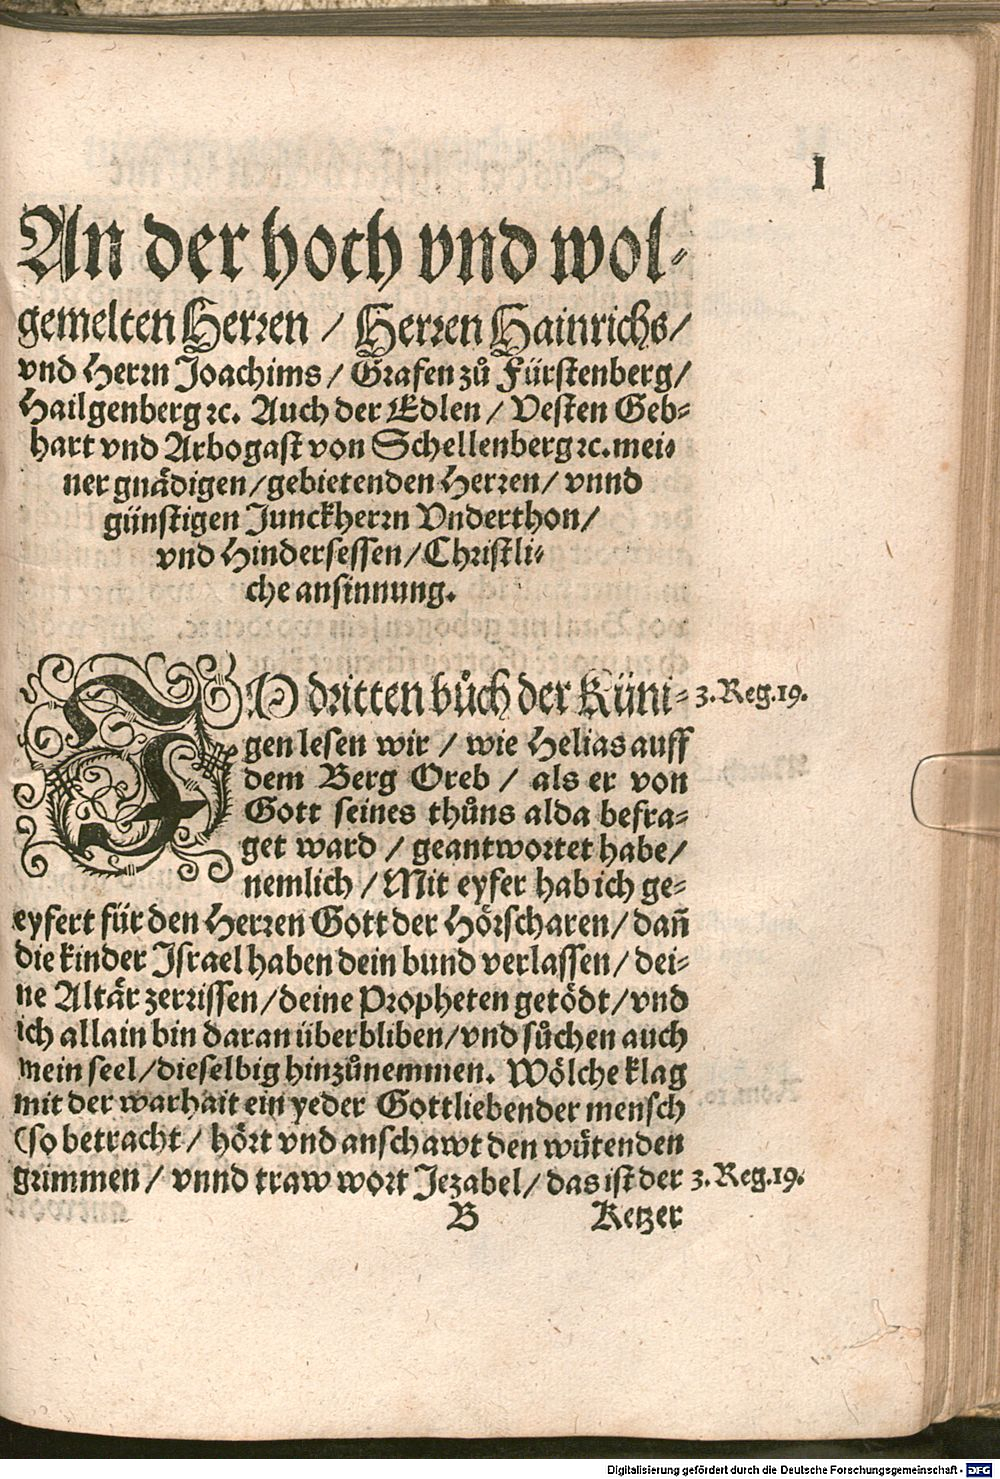 I
An der hoch vnd wol-
gemelten Herren / Herren Hainrichs /
vnd Herrn Joachims / Grafen zů Fürstenberg /
Hailgenberg ꝛc. Auch der Edlen / Vesten Geb-
hart vnd Arbogast von Schellenberg ꝛc. mei-
ner gnädigen / gebietenden Herren / vnnd
günstigen Junckherrn Vnderthon /
vnd Hindersessen / Christli-
che ansinnung.
IO dritten bůch der Küni- 3. Reg. 19.
gen lesen wir / wie Helias auff
dem Berg Oreb / als er von
Gott seines thůns alda befra-
get ward / geantwortet habe /
nemlich / Mit eyfer hab ich ge-
eyfert für den Herren Gott der Hörscharen / dañ
die kinder Israel haben dein bund verlassen / dei-
ne Altär zerrissen / deine Propheten getödt / vnd
ich allain bin daran überbliben / vnd sůchen auch
mein seel / dieselbig hinzůnemmen. Wölche klag
mit der warhait ein yeder Gottliebender mensch
(so betracht / hört vnd anschawt den wütenden
grimmen / vnnd traw wort Jezabel / das ist der 3. Reg. 19.
B Ketzer
Digitalisierung gefördert durch die Deutsche Forschungsgemeinschaft - DFG